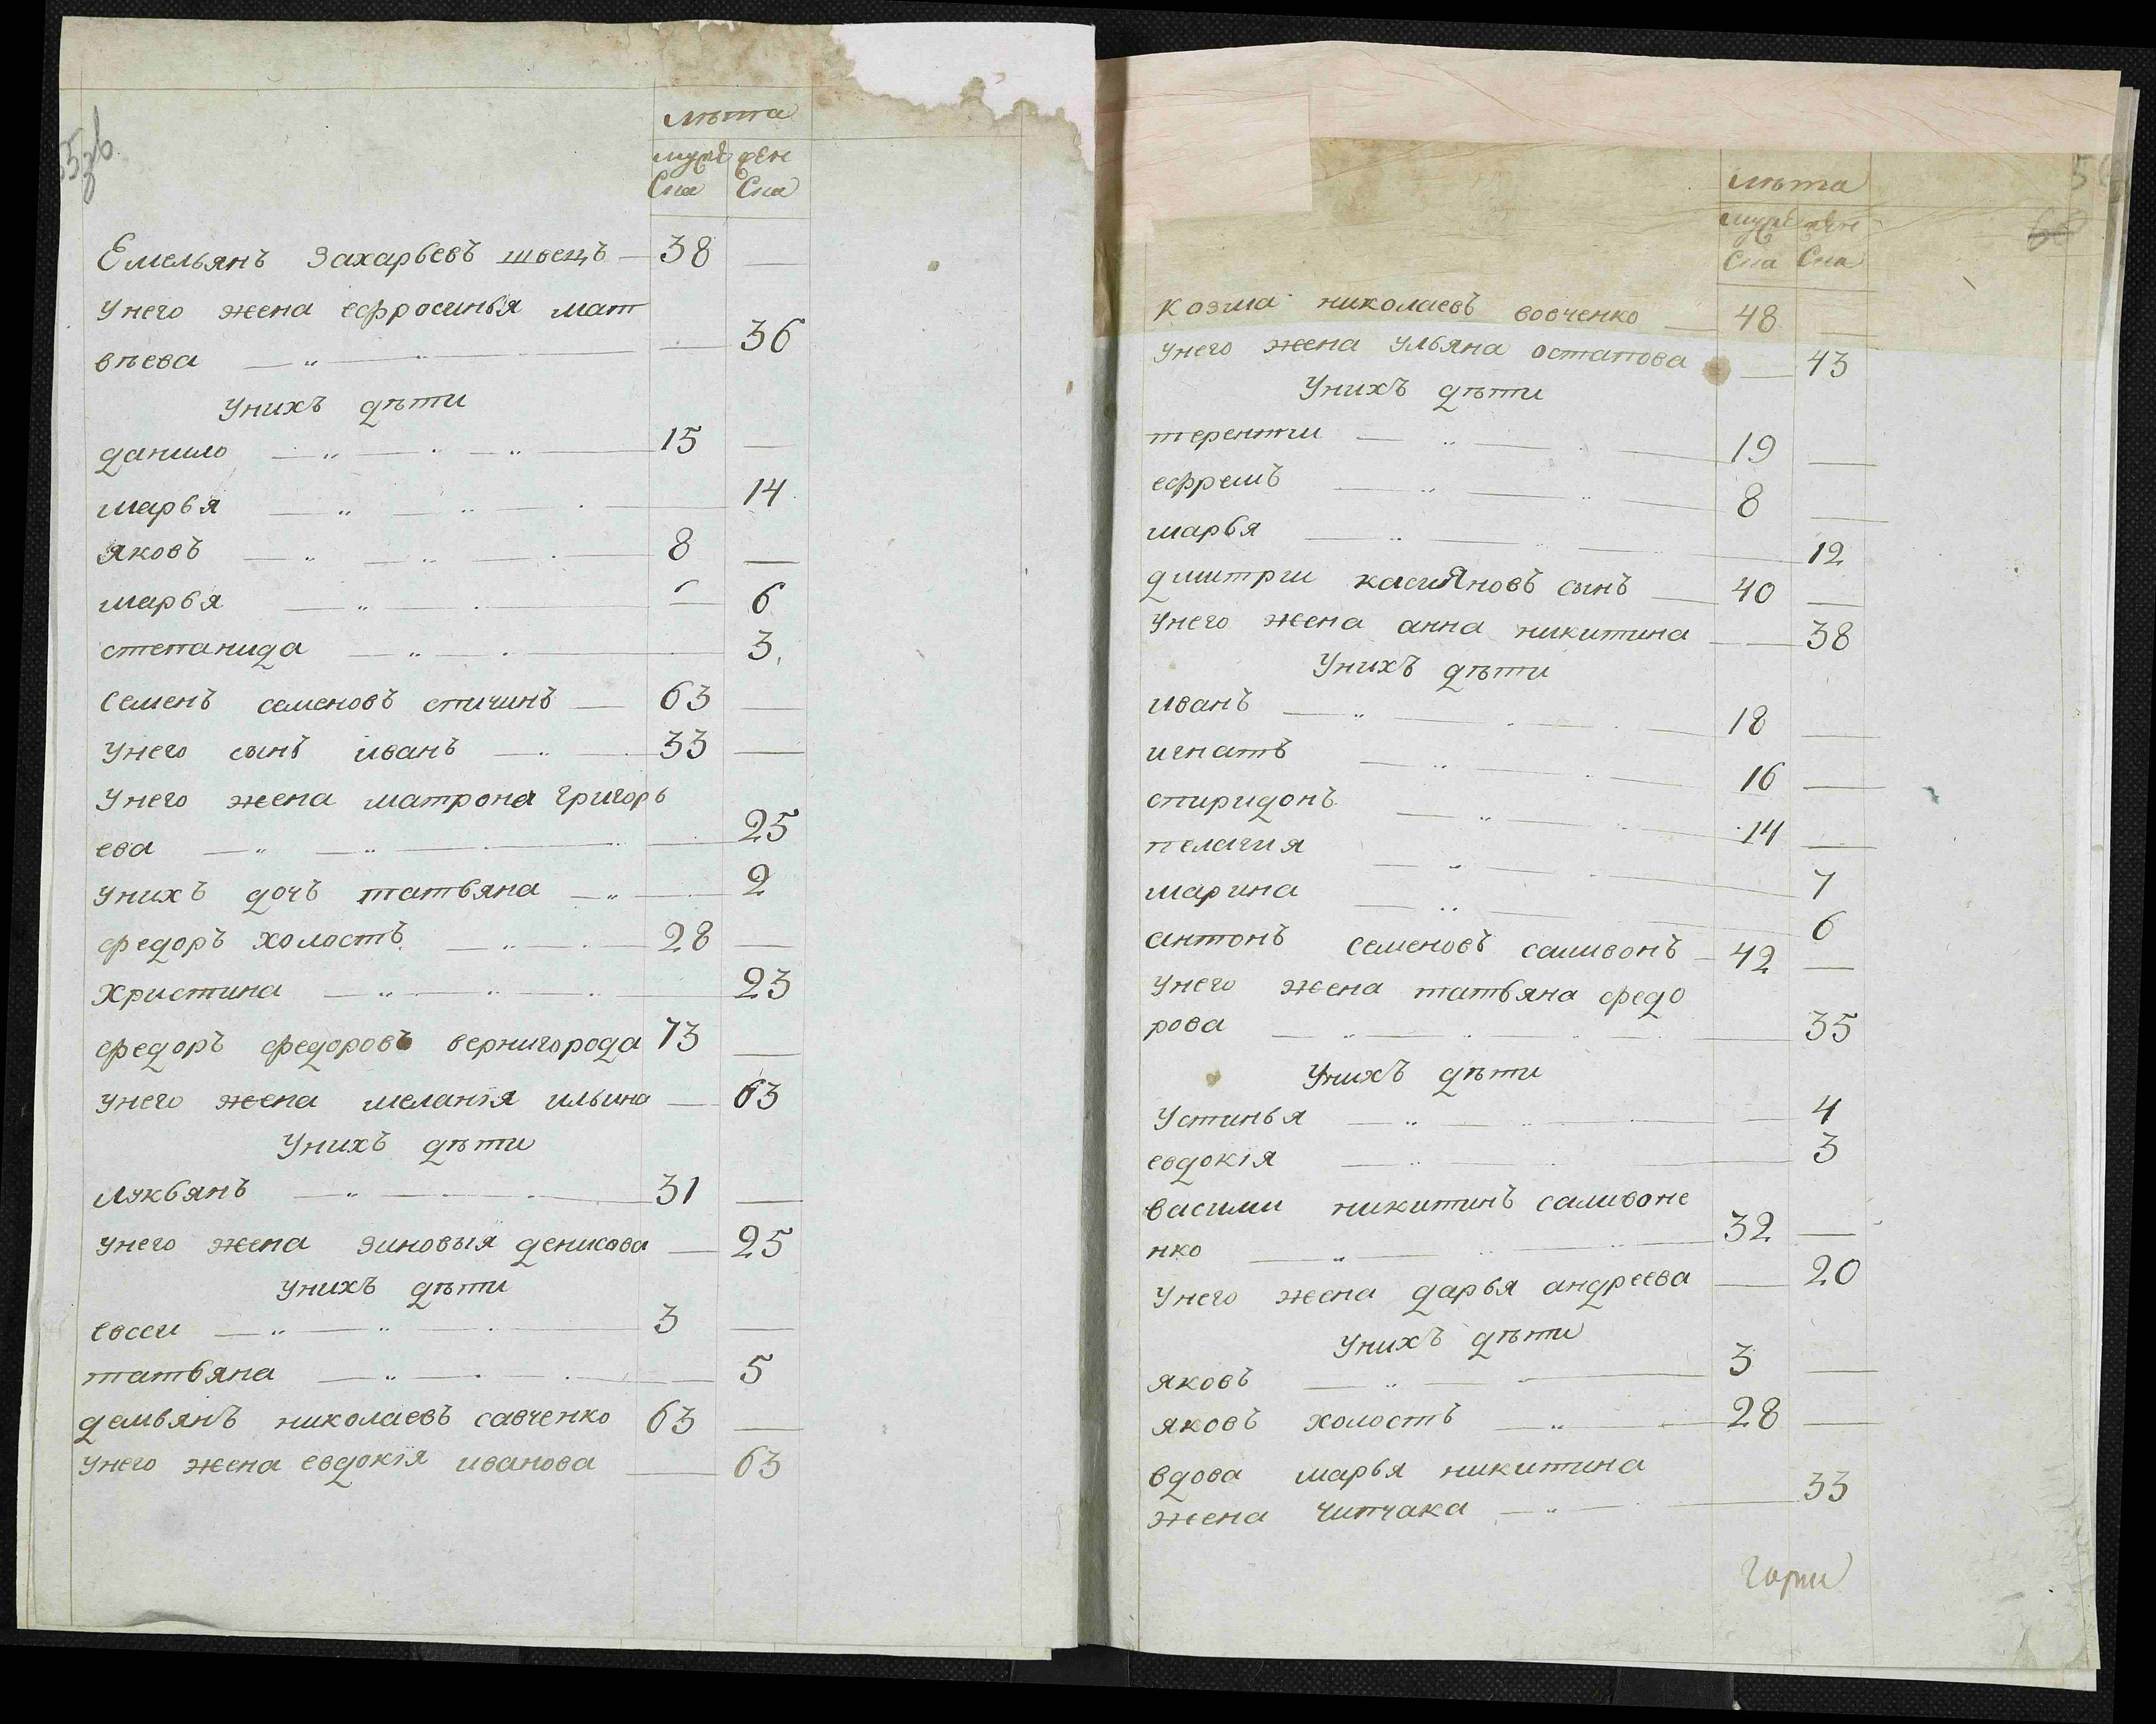 лѣта
муже жен
ска ска
Емельянъ Захарьевъ швецъ 38
Унего жена ефросинья мат
вѣева 36
Унихъ дѣти
данило 15
марья 14
яковъ 8
марья 6
степанида 3
Семенъ семеновъ спичинъ 63
Унего сынъ иванъ 33
Унего жена матрона григорь
ева 25
унихъ дочь татьяна 2
федоръ холостъ 28
Христина 23
федоръ федоровъ вернигорода 73
унего жена меланія ильина 63
Унихъ дѣти
Лукьянъ 31
унего жена зиновыя денисова 25
Унихъ дѣти
евсеи 3
татьяна 5
демьянъ николаевъ савченко 63
Унего жена евдокія иванова 63
лѣта
муже жен
ска ска
козма николаевъ вовченко 48
унего жена ульяна остапова 43
Унихъ дѣти
терентии 19
ефремъ 8
марья 12
дмитрии касияновъ сынъ 40
Унего жена анна никитина 38
Унихъ дѣти
иванъ 18
игнатъ 16
спиридонъ 14
пелагия 7
марина 6
антонъ семеновъ саливонъ 42
Унего жена татьяна федо
рова 35
Унихъ дѣти
Устинья 4
евдокія 3
василии никитинъ саливоне
нко 32
Унего жена дарья андреева 20
Унихъ дѣти
яковъ 3
яковъ холостъ 28
вдова марья никитина
жена чипчака 33